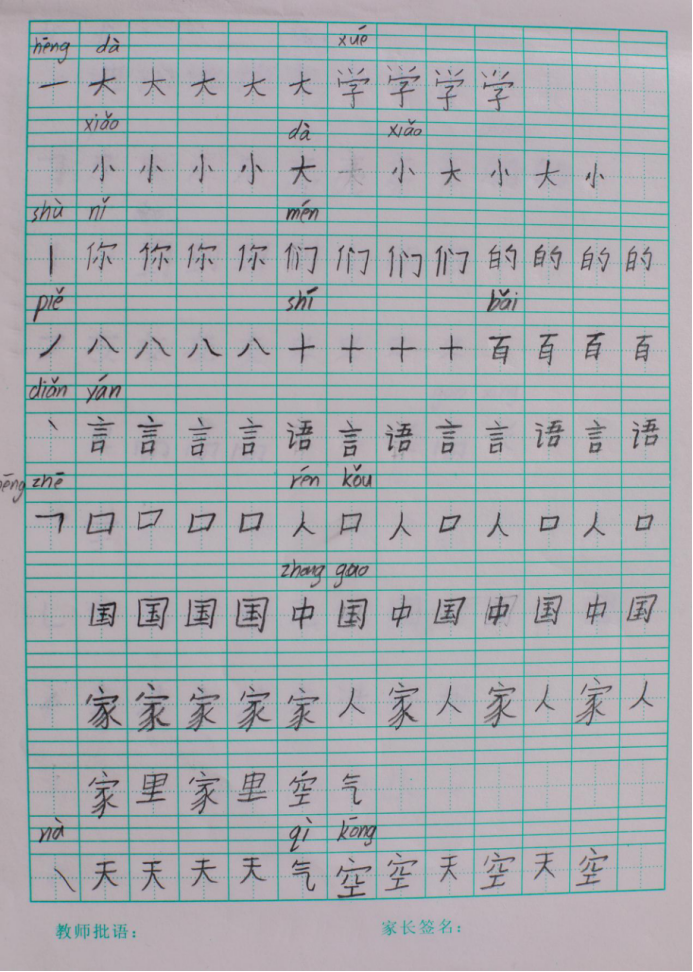 hēng dà xué
一 大 大 大 大 大 学 学 学 学
xiǎo dà xiǎo
小 小 小 小 大 大 小 大 小 大 小
shù nǐ mén
丨 你 你 你 你 们 们 们 们 的 的 的 的
piě shí bǎi
丿 八 八 八 八 十 十 十 十 百 百 百 百
diǎn yán
丶 言 言 言 言 语 言 语 言 言 语 言 语
hēng zhē rén kǒu
𠃍 口 口 口 口 人 口 人 口 人 口 人 口
zhong guo
国 国 国 国 中 国 中 国 中 国 中 国
家 家 家 家 家 人 家 人 家 人 家 人
家 里 家 里 空 气
nà qì kōng
㇏ 天 天 天 天 气 空 空 天 空 天 空
教师批语： 家长签名：